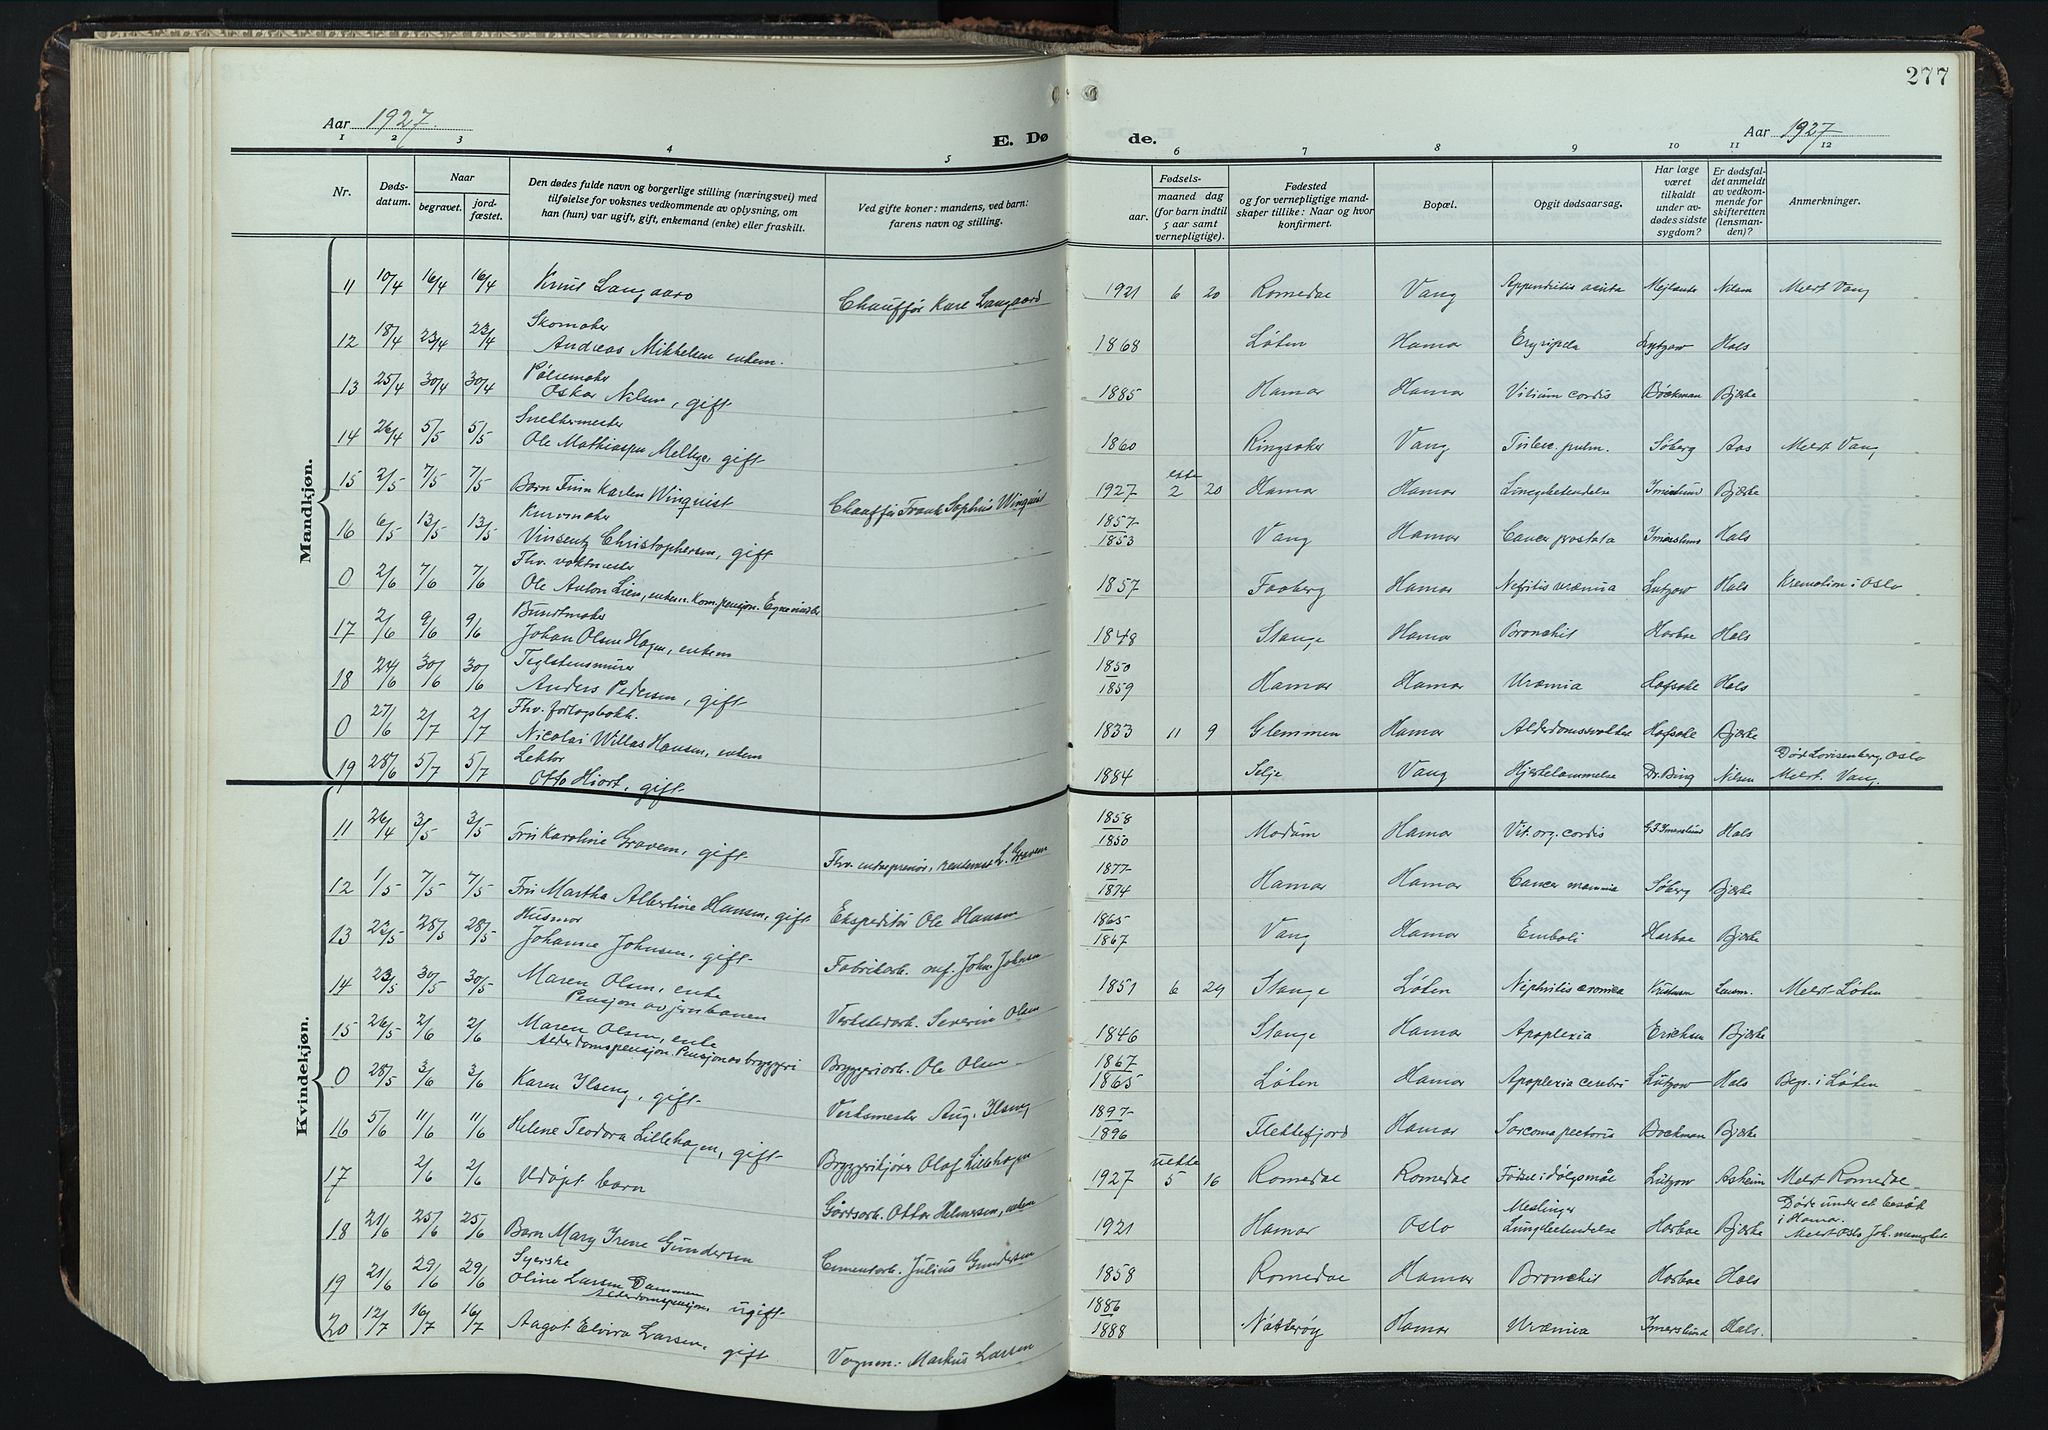 277
Aar 1927.
E. Døde.
Aar 1927
1 2 3 4 5 6 7 8 9 10 11 12
Nr.
Døds-datum.
Naar
begravet.
jord-fæstet.
Den dødes fulde navn og borgerlige stilling (næringsvei) med
tilføielse for voksnes vedkommende av oplysning, om
han (hun) var ugift, gift, enkemand (enke) eller fraskilt.
Ved gifte koner: mandens, ved barn:
farens navn og stilling.
Fødsels-
aar.
maaned dag
(for barn indtil
5 aar samt
vernepligtige).
Fødested
og for vernepligtige mand-
skaper tillike: Naar og hvor
konfirmert.
Bopæl.
Opgit dødsaarsag.
Har læge
været
tilkaldt
under av-
dødes sidste
sygdom?
Er dødsfal-
det anmeldt
av vedkom-
mende for
skifteretten
(lensman-
den)?
Anmerkninger.
Mandkjøn.
11 10/4 16/4 16/4 Knut Langaard Chauffør Karl Langaard 1921 6 20 Romedae Vang Appendisitis acuta Nilsen Meldt Vang
Skomaker
12 18/4 23/4 23/4 Andreas Mikkelsen enkem. 1868 Løten Hamar Erysipela Lutzow Hals
Pølsemaker
13 25/4 30/4 30/4 Oskar Nilsen, gift 1885 Hamar Hamar Vitium cordis Bøckman Bjerke
Snekkermester
14 26/4 5/5 5/5 Ole Mathiassen Melbye, gift 1860 Ringsaker Vang Tuberc. pulm. Søberg Aas Meldt Vang
15 2/5 7/5 7/5 Barn Finn Karlen Winquist Chauffør Frank Sophus Winquist 1927 2 20 Hamar Hamar Lungebetendelse Imerslund Bjerke
Kurvmaker
16 6/5 13/5 13/5 Vinsentz Christophersen, gift 1857 1853 Vang Hamar Cancer prostata Imerslund Hals
Fhv. vaktmester
0 2/6 7/6 7/6 Ole Anton Lien, enkem. Kom.pensjon. Egne midler 1857 Faaberg Hamar Nefritis uræmia Lutzow Hals Kremation i Oslo
Bundtmaker
17 2/6 9/6 9/6 Johan Olsen Hagen, enkem 1848 Stange Hamar Bronchit Harboe Hals
Teglstensmurer
18 24/6 30/6 30/6 Anders Pedersen, gift 1850 1859 Hamar Hamar Uræmia Hofsøke Hals
Fhv. forlagsbokh.
0 27/6 2/7 2/7 Nicolai Willas Hansen, enkem 1833 11 9 Glemmen Hamar Alderdomssvakhet Hofsøke Bjerke
Lektor
19 28/6 5/7 5/7 Otto Hiort, gift 1884 Selje Vang Hjertelammelse Dr. Bing Nilsen Død Lovisenberg, Oslo
Meldt Vang.
Kvindekjøn.
11 26/4 3/5 3/5 Fru Karoline Gravem, gift Fhv. entreprenør, rentenist L. Gravem 1858 1850 Modum Hamar Vit. org. cordis G.F. Imerslund Hals
12 1/5 7/5 7/5 Fru Martha Albertine Hansen, gift Ekspeditør Ole Hansen 1877 1874 Hamar Hamar Cancer mamma Søberg Bjerke
Husmor
13 22/5 28/5 28/5 Johanne Johnsen, gift Fabrikarb. John Johnsen 1865 1867 Vang Hamar Emboli Harboe Bjerke
14 23/5 30/5 30/5 Maren Olsen, enke Verkstedarb. Severin Olsen 1851 6 29 Stange Løten Nephritis cronica Lensm. Meldt Løten
Pensjon av jernbanen
15 26/5 2/6 2/6 Maren Olsen, enke Bryggeriarb. Ole Olsen 1846 Stange Hamar Apoplexia Ericksen Bjerke
Alderdomspensjon. Pensjon av bryggeri
0 28/5 3/6 3/6 Karen Ilseng, gift Verksmester Aug. Ilseng 1867 1865 Løten Hamar Apoplexia cerebri Lutzow Hals Begr. i Løten
16 5/6 11/6 11/6 Helene Teodora Lillehagen, gift Bryggerikjører Olaf Lillehagen 1897 1896 Flekkefjord Hamar Sarcoma pectoris Bockman Bjerke
17 2/6 2/6 Udøpt barn Gårdsarb. Ottar Helmersen, enkem 1927 5 16 Romedae Romedae Fødsel i dølgsmål Lutzow Asheim Meldt Romedae
18 21/6 25/6 25/6 Barn Mary Irene Gundersen Cementarb. Julius Gundersen 1921 Hamar Oslo Meslinger Lungebetendelse Harboe Bjerke Døde under et besøk
i Hamar.
Meldt Oslo Joh. menighet.
Syerske
19 21/6 29/6 29/6 Oline Larsen Dammen ugift 1858 Romedae Hamar Bronchit Harboe Hals
Alderdomspensjon.
20 12/7 16/7 16/7 Aagot Elvira Larsen, gift Vognm. Markus Larsen 1886 1888 Nøtterøy Hamar Uræmia Imerslund Hals.